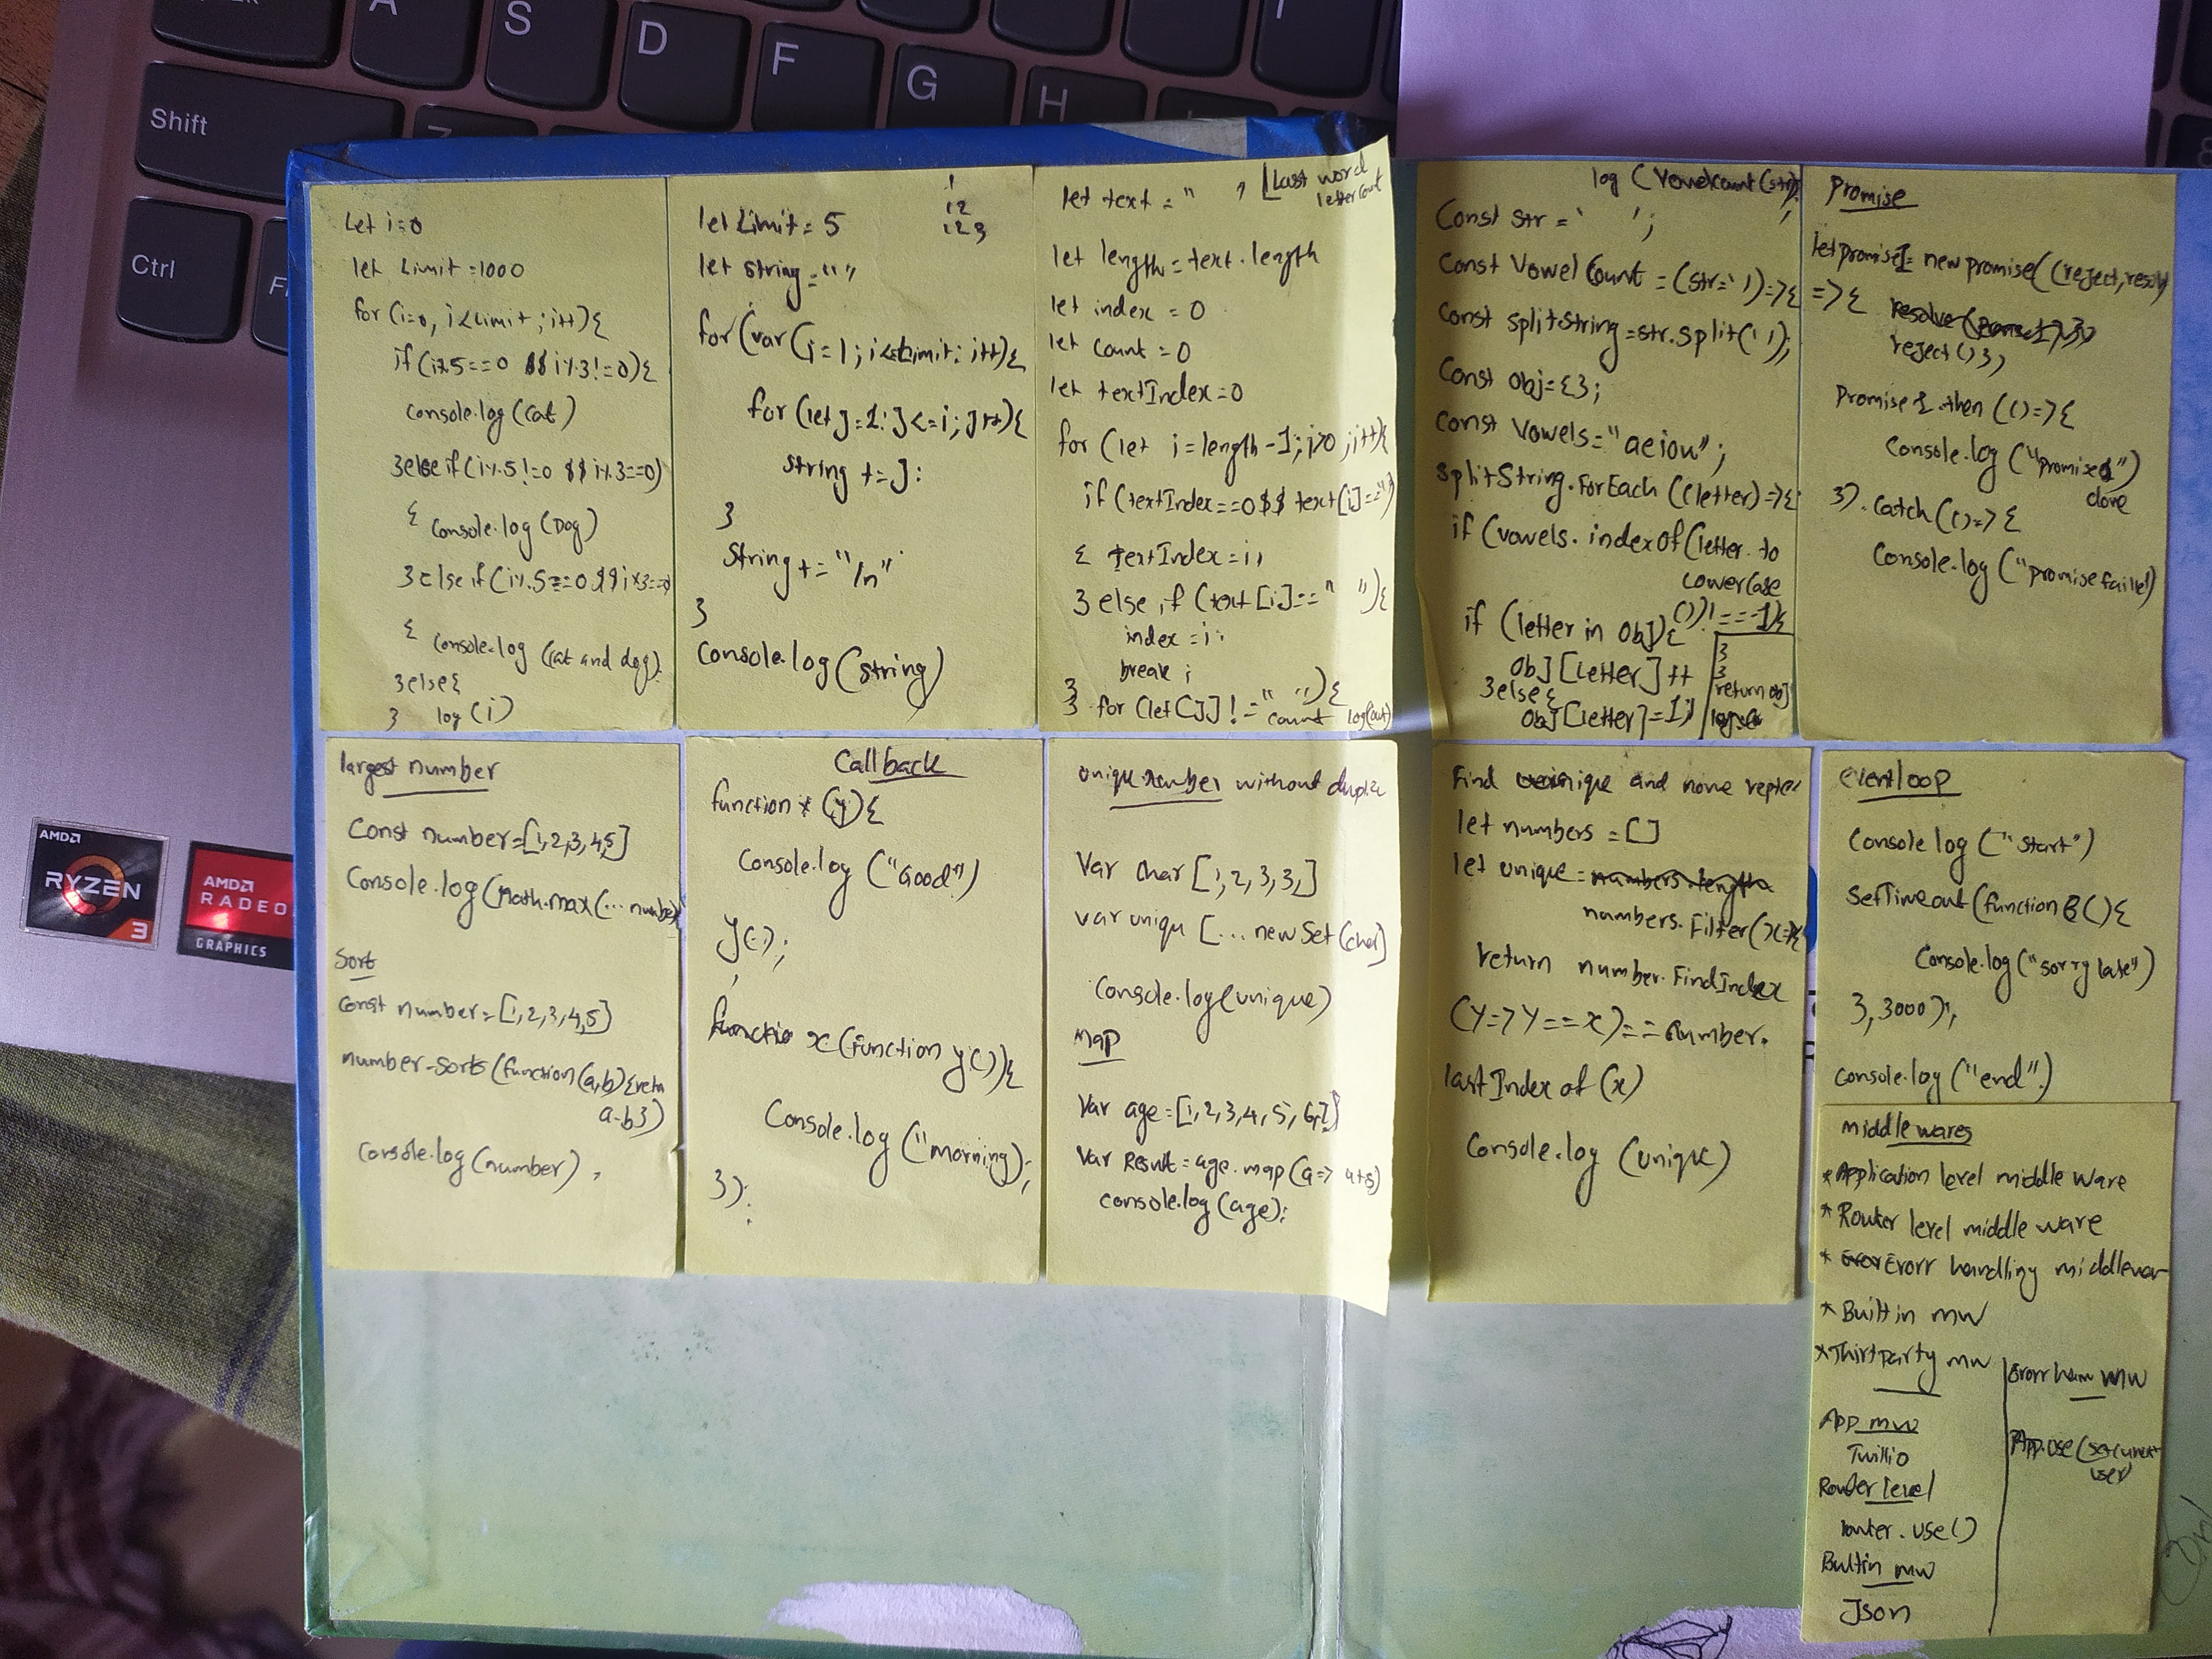 A
S
D
F
G
H
Shift
Z
Ctrl
Let i=0
let Limit =1000
for (i=0, i<Limit ; i++){
if (i%5==0 && i%3!=0){
console.log(cat)
}else if (i%5!=0 && i%3==0)
{ console.log (Dog)
}else if (i%.5==0 && i%3==0
{ console.log (cat and dog)
}else{
} log (i)
1
12
123
let Limit = 5
let string = ""
for (var (i=1; i<=Limit; i++){
for (let J=1; J<=i; J++){
string += J:
}
String += "/n"
}
Console.log(string)
let text = " , [Last word
letter count
let length = text.length
let index = 0
let count = 0
let textIndex=0
for (let i=length-1; i>0; i++){
if (textIndex==0 && text[i]==" ")
{ textIndex = i;
} else if (text[i]==" "){
index = i;
break ;
}
} for (let[J] != " "){
count log(out)
log (Vowelcount(str);
Const str = ' ';
Const Vowel Count = (str=' ')=>{
Const splitString=str.split(' ');
Const obj={};
Const Vowels="aeiou";
SplitString.forEach ((letter)=>{
if (vowels.indexOf(letter.to
Lowercase
())!==-1){
if (letter in obj){
obj[letter]++
}else{
obj[letter]=1;}
}
}
return obj
Promise
let promise1= new promise((reject,resolv
=>{
reject()});
Promise1.then (()=>{
Console.log ("promised")
done
}).catch(()=>{
Console.log ("promise failed)
largest number
Const number=[1,2,3,4,5]
Console.log(Math.max(...number
Sort
const number=[1,2,3,4,5]
number.sorts(function(a,b){retn
a-b})
console.log(number) ,
Callback
function x (y){
Console.log ("Good")
y();
functio x(function y()){
Console.log ("morning);
});
unique number without duplic
Var char [1,2,3,3,]
var uniqu [...new Set (char]
Console.log(unique)
Map
Var age=[1,2,3,4,5,6,7]
Var Result=age.map(a=> a+5)
console.log(age);
Find unique and none repte
let numbers = []
let unique = numbers.length
numbers.Filter(x=>{
return number.FindIndex
(Y=>Y==x)==number.
lastIndex of (x)
Console.log (unique)
eventloop
Console log ("start")
setTimeout(function B(){
Console.log("sorry late")
},3000);
console.log("end")
Middle wares
*Application level middle ware
*Router level middle ware
* Erorr handling middlewar
*Builtin mw
*Thirt party mw
App mw
Twilio
Router level
router.use()
Builtin mw
Json
Erorr han MW
App.use(setcurrent
user)
AMD
RYZEN
3
AMD
RADEO
GRAPHICS